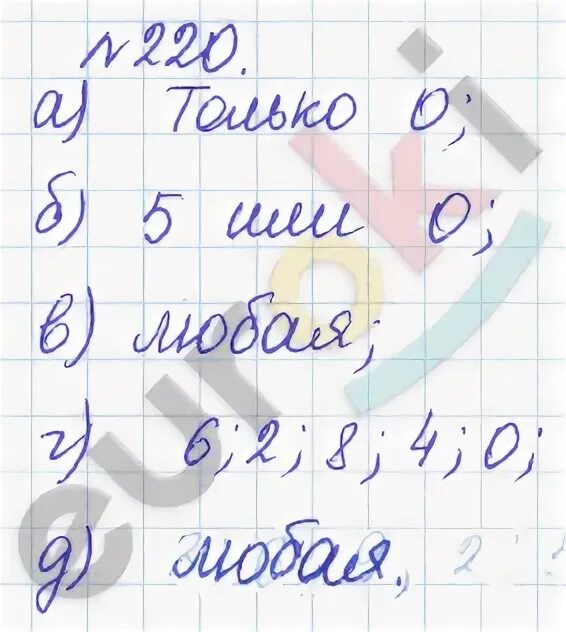 №220.
а) Только 0;
б) 5 или 0;
в) любая;
г) 6; 2; 8; 4; 0;
д) любая.
euroki